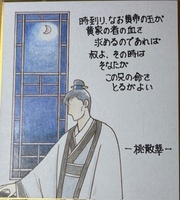 時到り、なお黄帝の玉が
黄家の者の血を
求めるのであれば
叔よ、その時は
そなたが
この兄の命を
とるがよい
ー桃散華ー